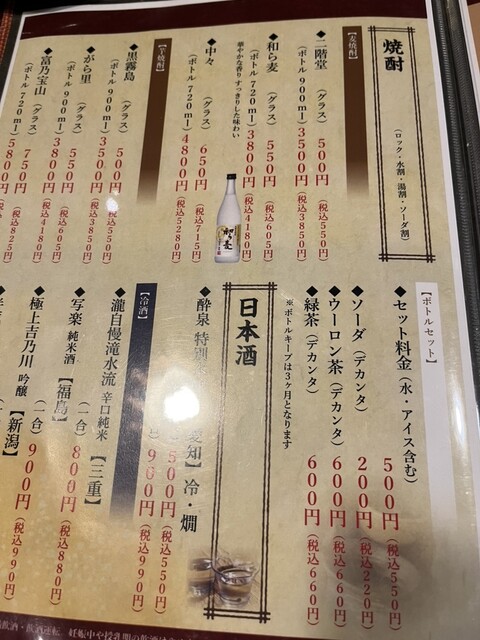 焼酎
(ロック・水割・湯割・ソーダ割)
【麦焼酎】
◆二階堂 (グラス) 500円 (税込550円)
(ボトル900ml) 3500円 (税込3850円)
◆和ら麦 (グラス) 550円 (税込605円)
(ボトル720ml) 3800円 (税込4180円)
華やかな香り すっきりした味わい
◆中々 (グラス) 650円 (税込715円)
(ボトル720ml) 4800円 (税込5280円)
和ら麦
【芋焼酎】
◆黒霧島 (グラス) 500円 (税込550円)
(ボトル900ml) 3500円 (税込3850円)
◆がら里 (グラス) 550円 (税込605円)
(ボトル900ml) 3800円 (税込4180円)
◆富乃宝山 (グラス) 750円 (税込825円)
(ボトル720ml) 5800円
【ボトルセット】
◆セット料金 (水・アイス含む) 500円 (税込550円)
◆ソーダ (デカンタ) 200円 (税込220円)
◆ウーロン茶 (デカンタ) 600円 (税込660円)
◆緑茶 (デカンタ) 600円 (税込660円)
※ボトルキープは3ヶ月となります
日本酒
◆酔泉 特別 愛知】 冷・燗
500円 (税込550円)
【冷酒】
900円 (税込990円)
◆瀧自慢滝水流 辛口純米 【三重】
◆写楽 純米酒 【福島】
(一合) 800円 (税込880円)
◆極上吉乃川 吟醸 【新潟】
(一合) 900円 (税込990円)
飲酒・飲酒運転 妊娠中や授乳期の飲酒は